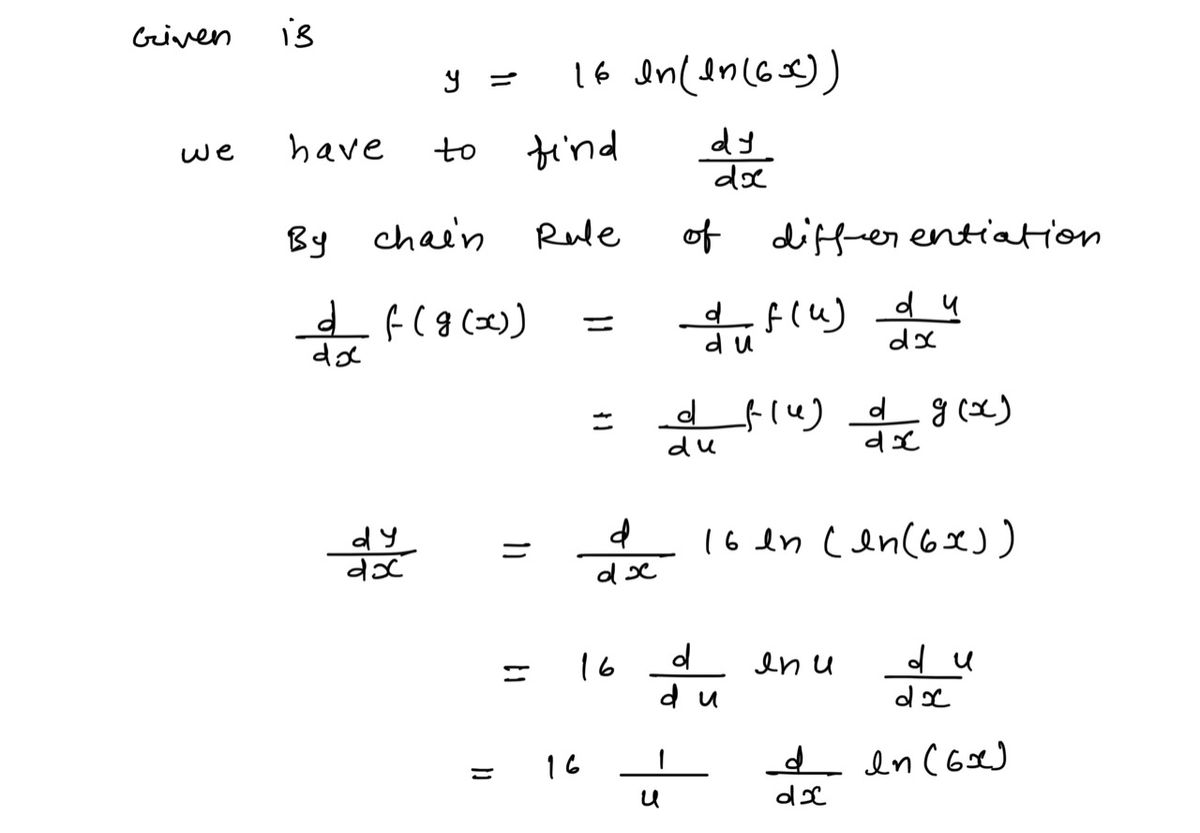 Given is
y = 16 ln(ln(6x))
we have to find dy/dx
By chain Rule of differentiation
d/dx f(g(x)) = d/du f(u) du/dx
= d/du f(u) d/dx g(x)
dy/dx = d/dx 16 ln(ln(6x))
= 16 d/du ln u du/dx
= 16 1/u d/dx ln(6x)